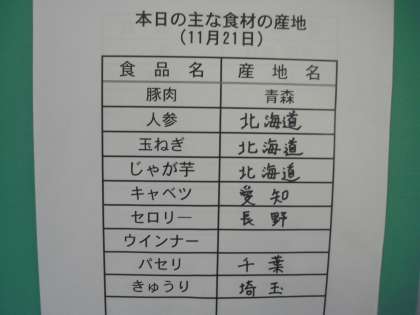 本日の主な食材の産地
(11月21日)
食品名 産地名
豚肉 青森
人参 北海道
玉ねぎ 北海道
じゃが芋 北海道
キャベツ 愛知
セロリー 長野
ウインナー
パセリ 千葉
きゅうり 埼玉